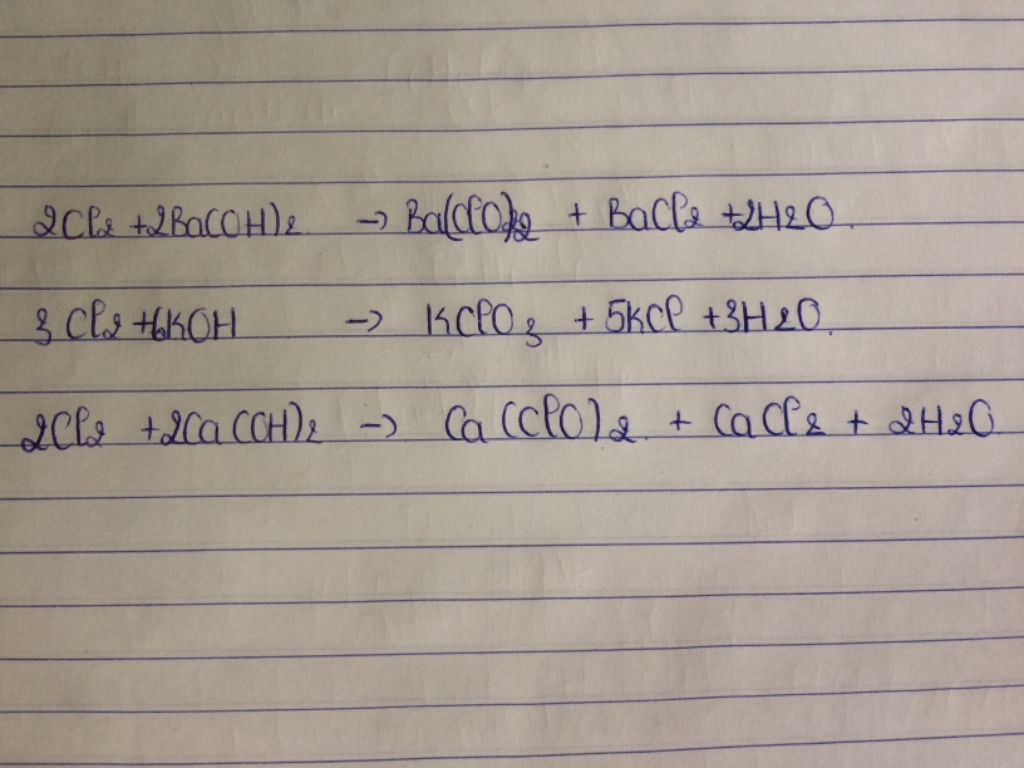 2Cl2 + 2Ba(OH)2 → Ba(ClO)2 + BaCl2 + 2H2O.
3Cl2 + 6KOH → KClO3 + 5KCl + 3H2O.
2Cl2 + 2Ca(OH)2 → Ca(ClO)2 + CaCl2 + 2H2O